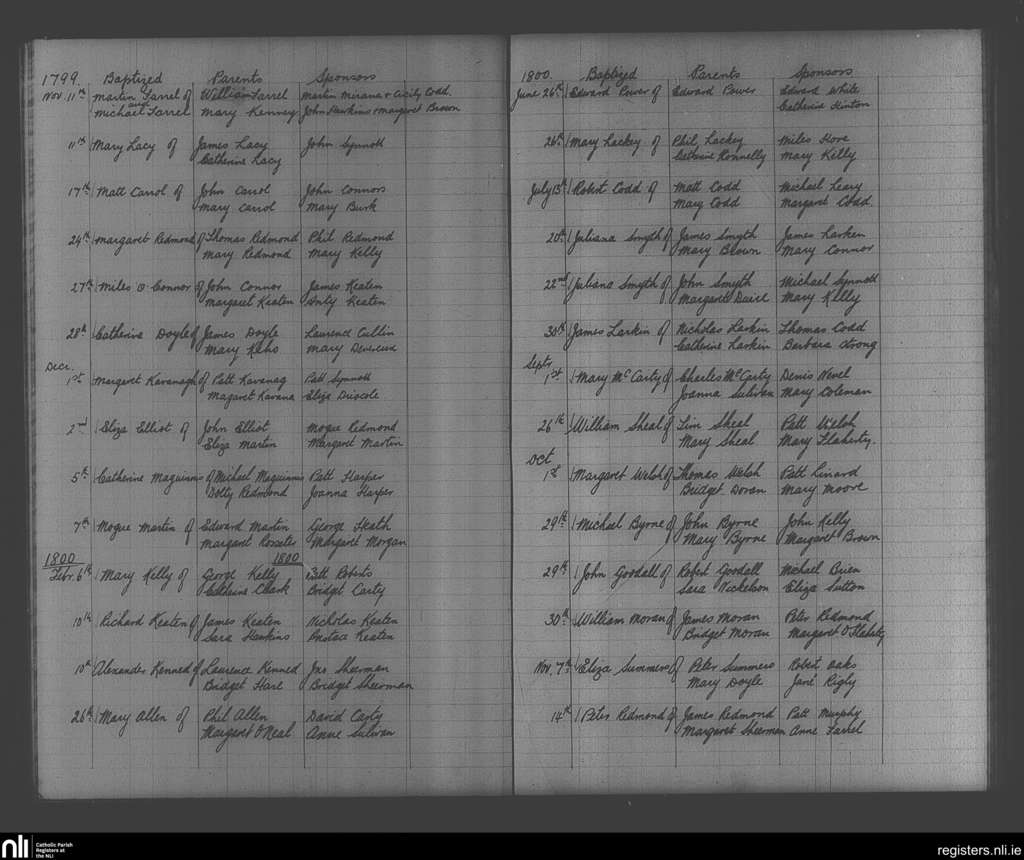 1799 Baptized Parents Sponsors
Nov. 11th Martin Farrel of William Farrel Martin & Cicily Codd
and
Michael Farrel Mary Kenney John Hawkins & Margaret Brown
11th Mary Lacy of James Lacy John Synnott
Catherine Lacy
17th Matt Carrol of John Carrol John Connors
Mary Carrol Mary Burk
24th Margaret Redmond of Thomas Redmond Phil Redmond
Mary Redmond Mary Kelly
27th Miles O Connor of John Connor James Keaten
Margaret Keaten Keaten
28th Catherine Doyle of James Doyle Laurence Cullin
Mary Keho Mary Devereux
Decr.
1st Margaret Kavanagh of Patt Kavanag Patt Synnott
Magaret Kavana Eliza Driscole
2nd Eliza Elliot of John Elliot Mogue Redmond
Eliza Martin Margaret Martin
5th Catherine Maguinnis of Michael Maguinnis Patt Harper
Dolly Redmond Joanna Harper
7th Mogue Martin of Edward Martin George Heath
Margaret Rosseter Margaret Morgan
1800 1800
Febr. 6th Mary Kelly of George Kelly Patt Roberts
Catherine Clark Bridget Carty
10th Richard Keaten of James Keaten Nicholas Keaten
Sara Hawkins Anstace Keaten
10th Alexander Kenned of Laurence Kenned Jno. Sheerman
Bridget Hare Bridget Sheerman
26th Mary Allen of Phil Allen David Carty
Margaret O'Neal Anne Sulivan
1800. Baptized Parents Sponsors
June 26th Edward Power of Edward Power Edward White
Catherine Hinton
26th Mary Lackey of Phil Lackey Miles Hore
Catherine Ronnelly Mary Kelly
July 13th Robert Codd of Matt Codd Michael Leary
Mary Codd Margaret Codd.
20th Juliana Smyth of James Smyth James Larkin
Mary Brown Mary Connor
22nd Juliana Smyth of John Smyth Michael Synnott
Margaret Mary Kelly
30th James Larkin of Nicholas Larkin Thomas Codd
Catherine Larkin Barbara Strong
Septr
1st Mary McCarty of Charles McCarty Denis Nevel
Joanna Sulivan Mary Coleman
26th William Sheal of Tim Sheal Patt Welsh
Mary Sheal Mary Flaherty.
Oct
1st Margaret Welsh of Thomas Welsh Patt Linard
Bridget Doran Mary Moore
29th Michael Byrne of John Byrne John Kelly
Mary Byrne Margaret Brown
29th John Goodall of Robert Goodall Michael Brien
Sara Nickelson Eliza Sutton
30th William Moran of James Moran Peter Redmond
Bridget Moran Margaret O'Flaherty
Nov. 7th Eliza Summers of Peter Summers Robert Oaks
Mary Doyle Jane Rigly
14th Peter Redmond of James Redmond Patt Murphy
Margaret Sheerman Anne Farrel
nli Catholic Parish
Registers at
the NLI
registers.nli.ie